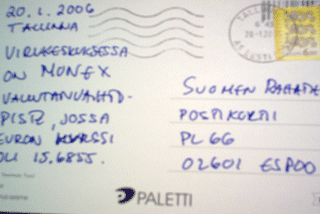 20.1.2006
TALLINNA
VIRUKESKUKSESSA
ON MONEX
VALUUTANVAIHTO-
PISTE, JOSSA
EURON KURSSI
OLI 15,6855.
SUOMEN
POSTIKORTTI
PL 66
02601 ESPOO
PALETTI